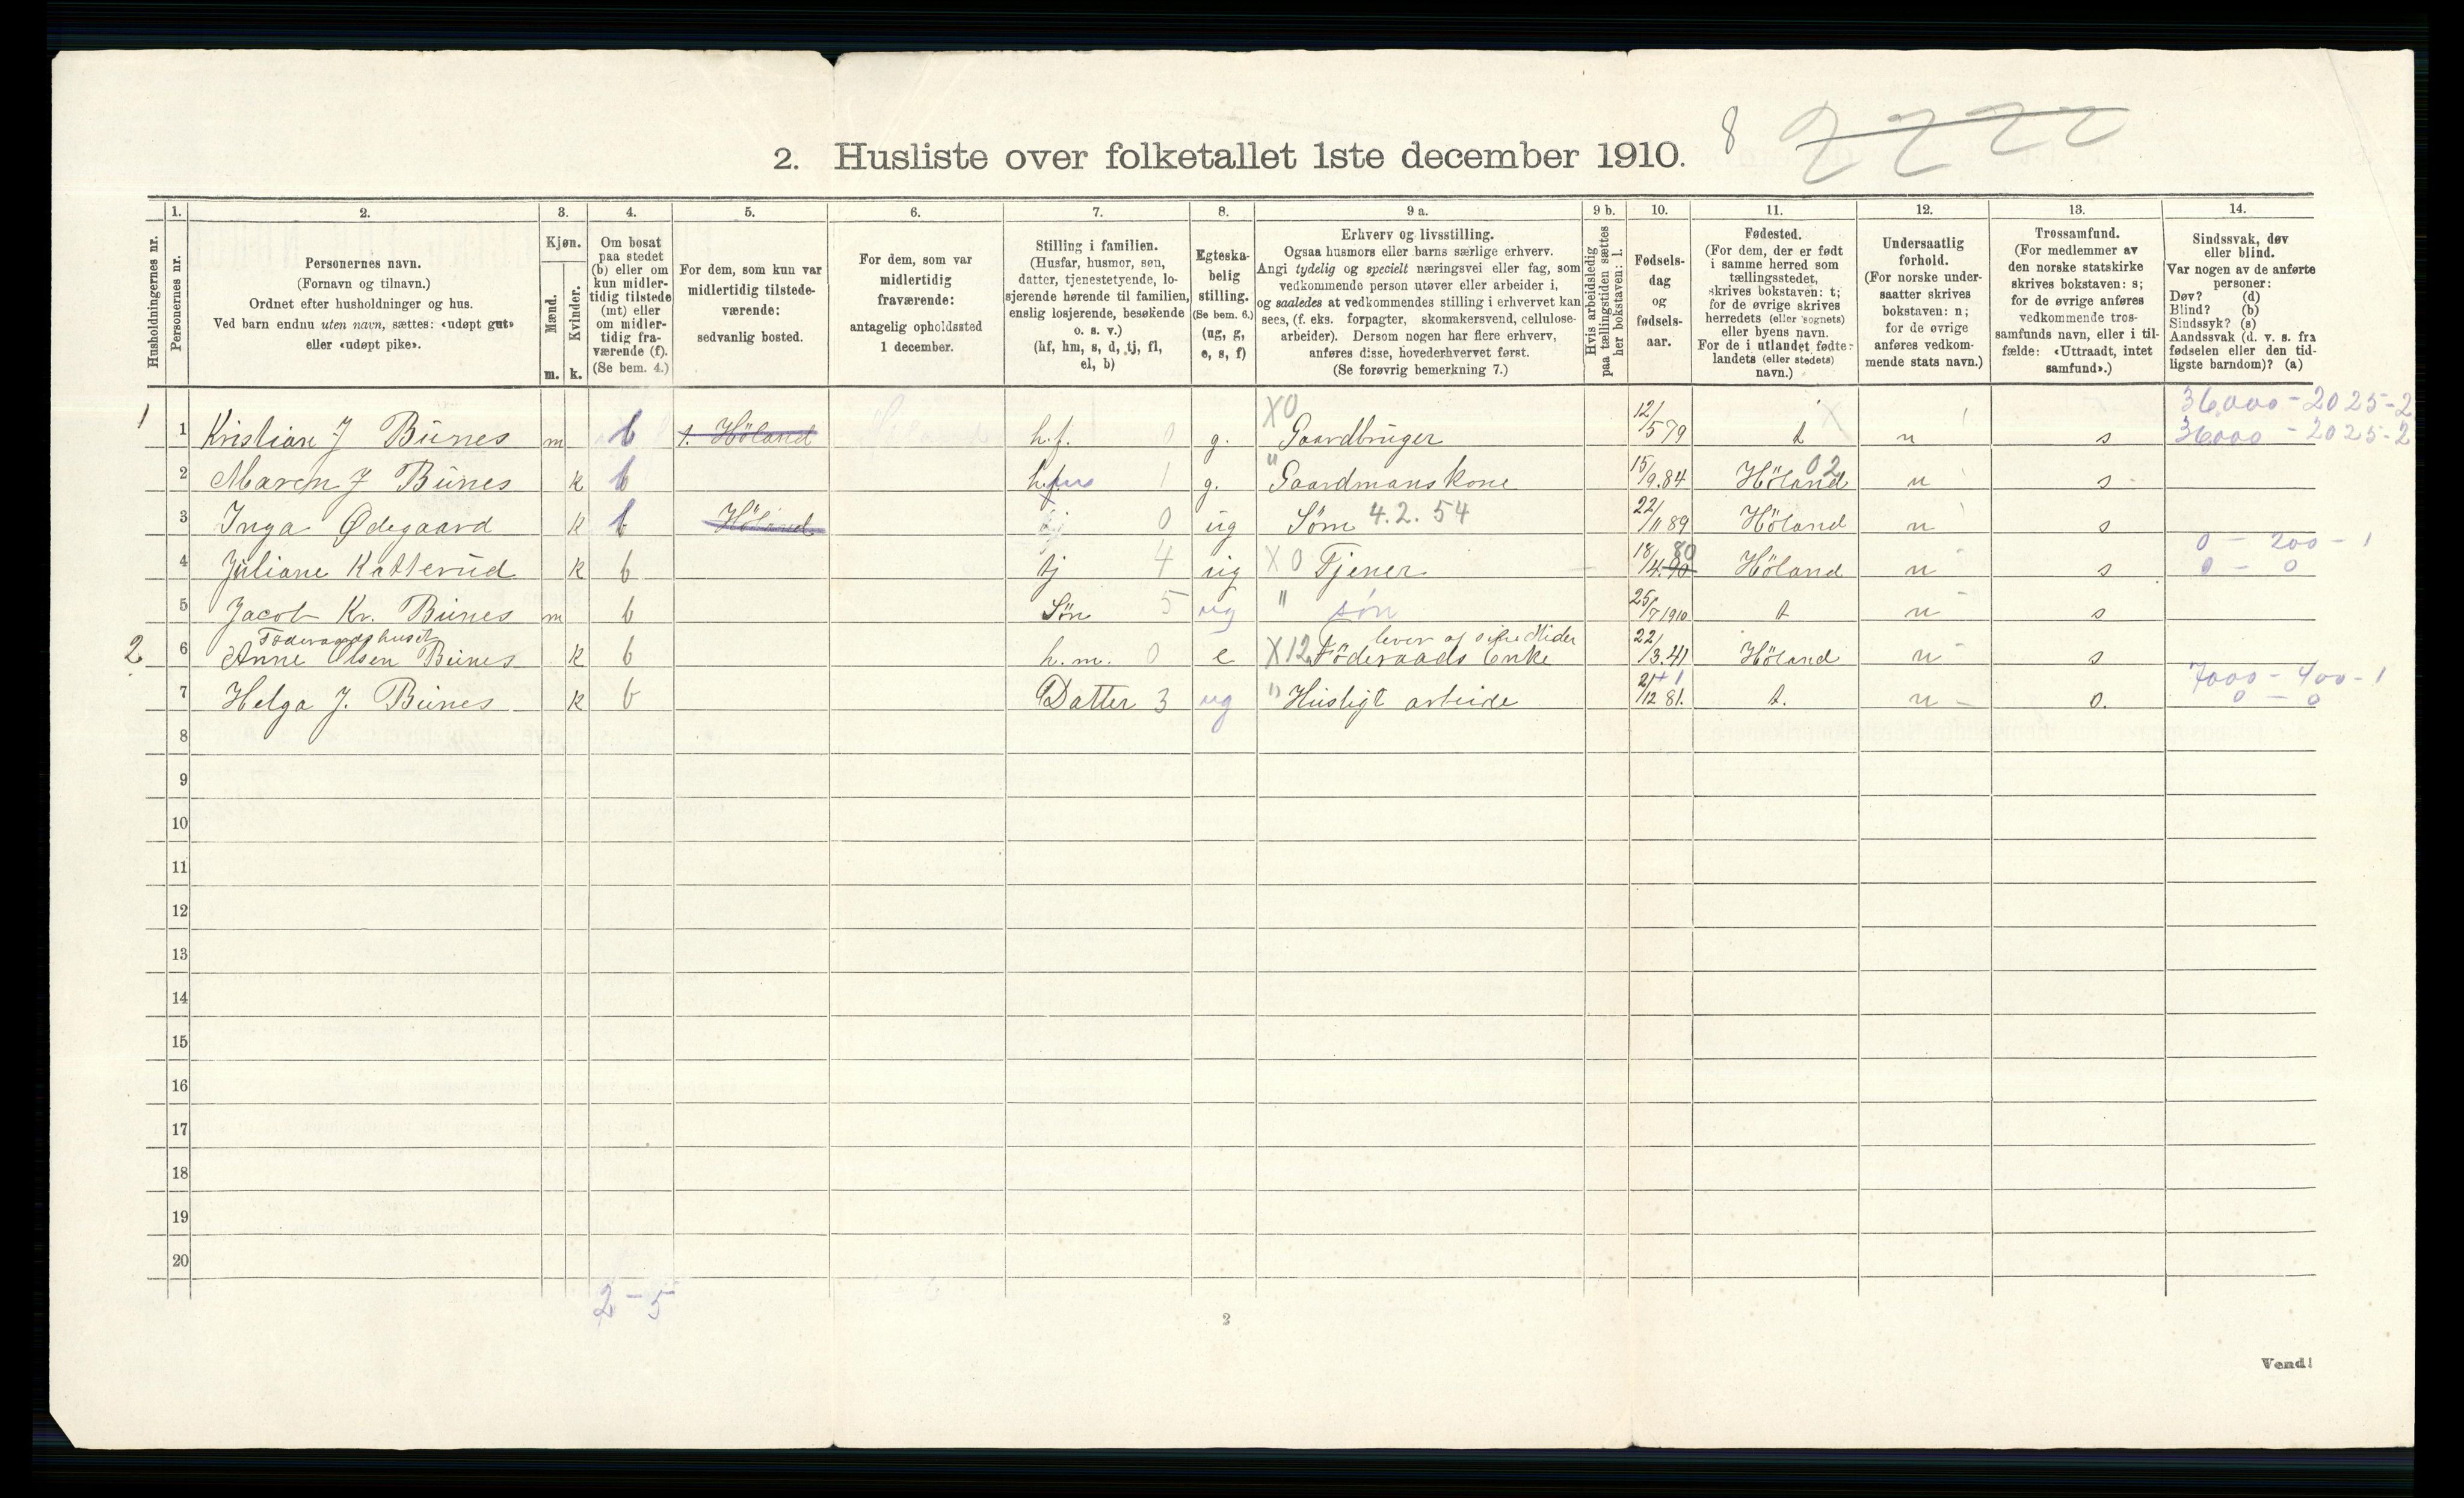 8 2222
2. Husliste over folketallet 1ste december 1910.
1. 2. 3. 4. 5. 6. 7. 8. 9 a. 9 b. 10. 11. 12. 13. 14.
Husholdningernes nr.
Personernes nr.
Personernes navn.
(Fornavn og tilnavn.)
Ordnet efter husholdninger og hus.
Ved barn endnu uten navn, sættes: «udøpt gut»
eller «udøpt pike».
Kjøn.
Mænd.
m.
Kvinder.
k.
Om bosat
paa stedet
(b) eller om
kun midler-
tidig tilstede
(mt) eller
om midler-
tidig fra-
værende (f).
(Se bem. 4.)
For dem, som kun var
midlertidig tilstede-
værende:
sedvanlig bosted.
For dem, som var
midlertidig
fraværende:
antagelig opholdssted
1 december.
Stilling i familien.
(Husfar, husmor, søn,
datter, tjenestetyende, lo-
sjerende hørende til familien,
enslig losjerende, besøkende
o. s. v.)
(hf, hm, s, d, tj, fl,
el, b)
Egteska-
belig
stilling.
(Se bem. 6.)
(ug, g,
e, s, f)
Erhverv og livsstilling.
Ogsaa husmors eller barns særlige erhverv.
Angi tydelig og specielt næringsvei eller fag, som
vedkommende person utøver eller arbeider i,
og saaledes at vedkommendes stilling i erhvervet kan
sees, (f. eks. forpagter, skomakersvend, cellulose-
arbeider). Dersom nogen har flere erhverv,
anføres disse, hovederhvervet først.
(Se forøvrig bemerkning 7.)
Hvis arbeidsledig
paa tællingstiden sættes
her bokstaven: l.
Fødsels-
dag
og
fødsels-
aar.
Fødested.
(For dem, der er født
i samme herred som
tællingsstedet,
skrives bokstaven: t;
for de øvrige skrives
herredets (eller sognets)
eller byens navn.
For de i utlandet fødte:
landets (eller stedets)
navn.)
Undersaatlig
forhold.
(For norske under-
saatter skrives
bokstaven: n;
for de øvrige
anføres vedkom-
mende stats navn.)
Trossamfund.
(For medlemmer av
den norske statskirke
skrives bokstaven: s;
for de øvrige anføres
vedkommende tros-
samfunds navn, eller i til-
fælde: «Uttraadt, intet
samfund».)
Sindssvak, døv
eller blind.
Var nogen av de anførte
personer:
Døv? (d)
Blind? (b)
Sindssyk? (s)
Aandssvak (d. v. s. fra
fødselen eller den tid-
ligste barndom)? (a)
X0 36,000 - 2025 - 2
1 1 Kristian J Bunes m b t. Höland h.f. 0 g. Gaardbruger 12/5 79 t n s 36000 - 2025 - 2
2 Maren J Bunes k b h. 1 g. " Gaardmanskone 15/9.84 Höland 02 n s
3 Inga Ødegaard k b Höland 0 ug Söm 4.2.54 22/11 89 Höland n s
80 0 - 200 - 1
4 Juliane Katterud k b tj 4 ug X0 Tjener 18/4.90 Höland n s 0 - 0
5 Jacob Kr. Bunes m b Sön 5 ug " søn 25/7 1910 t n s
Föderaadshuset lever af sine Midler
2 6 Anne Olsen Bunes k b h.m. 0 e X12 Föderaads Enke 22/3.41 Höland n s
7000 - 400 - 1
7 Helga J. Bunes k b Datter 3 ug " Husligt arbeide 21/12 81. t. n 0. 0 - 0
8
9
10
11
12
13
14
15
16
17
18
19
20
2 - 5
2
Vend!